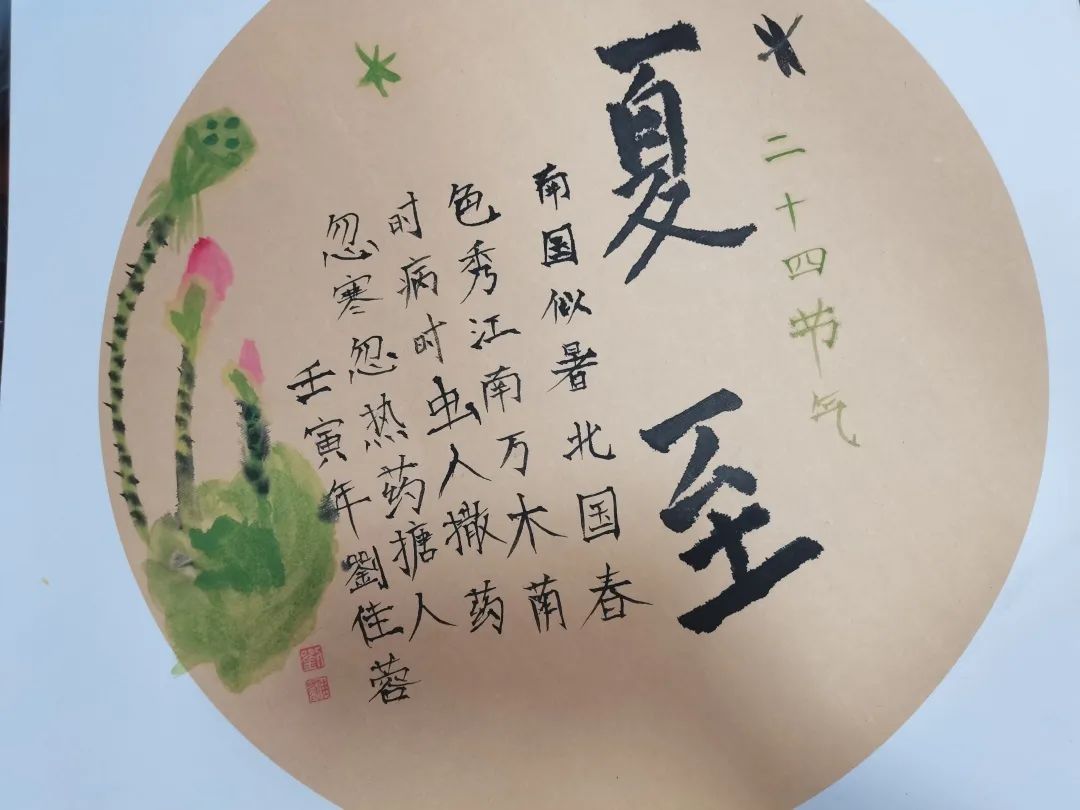 二十四节气
夏至
南国似暑北国春
色秀江南万木
时病时虫人撒药
忽寒忽热药搪人
壬寅年劉佳蓉